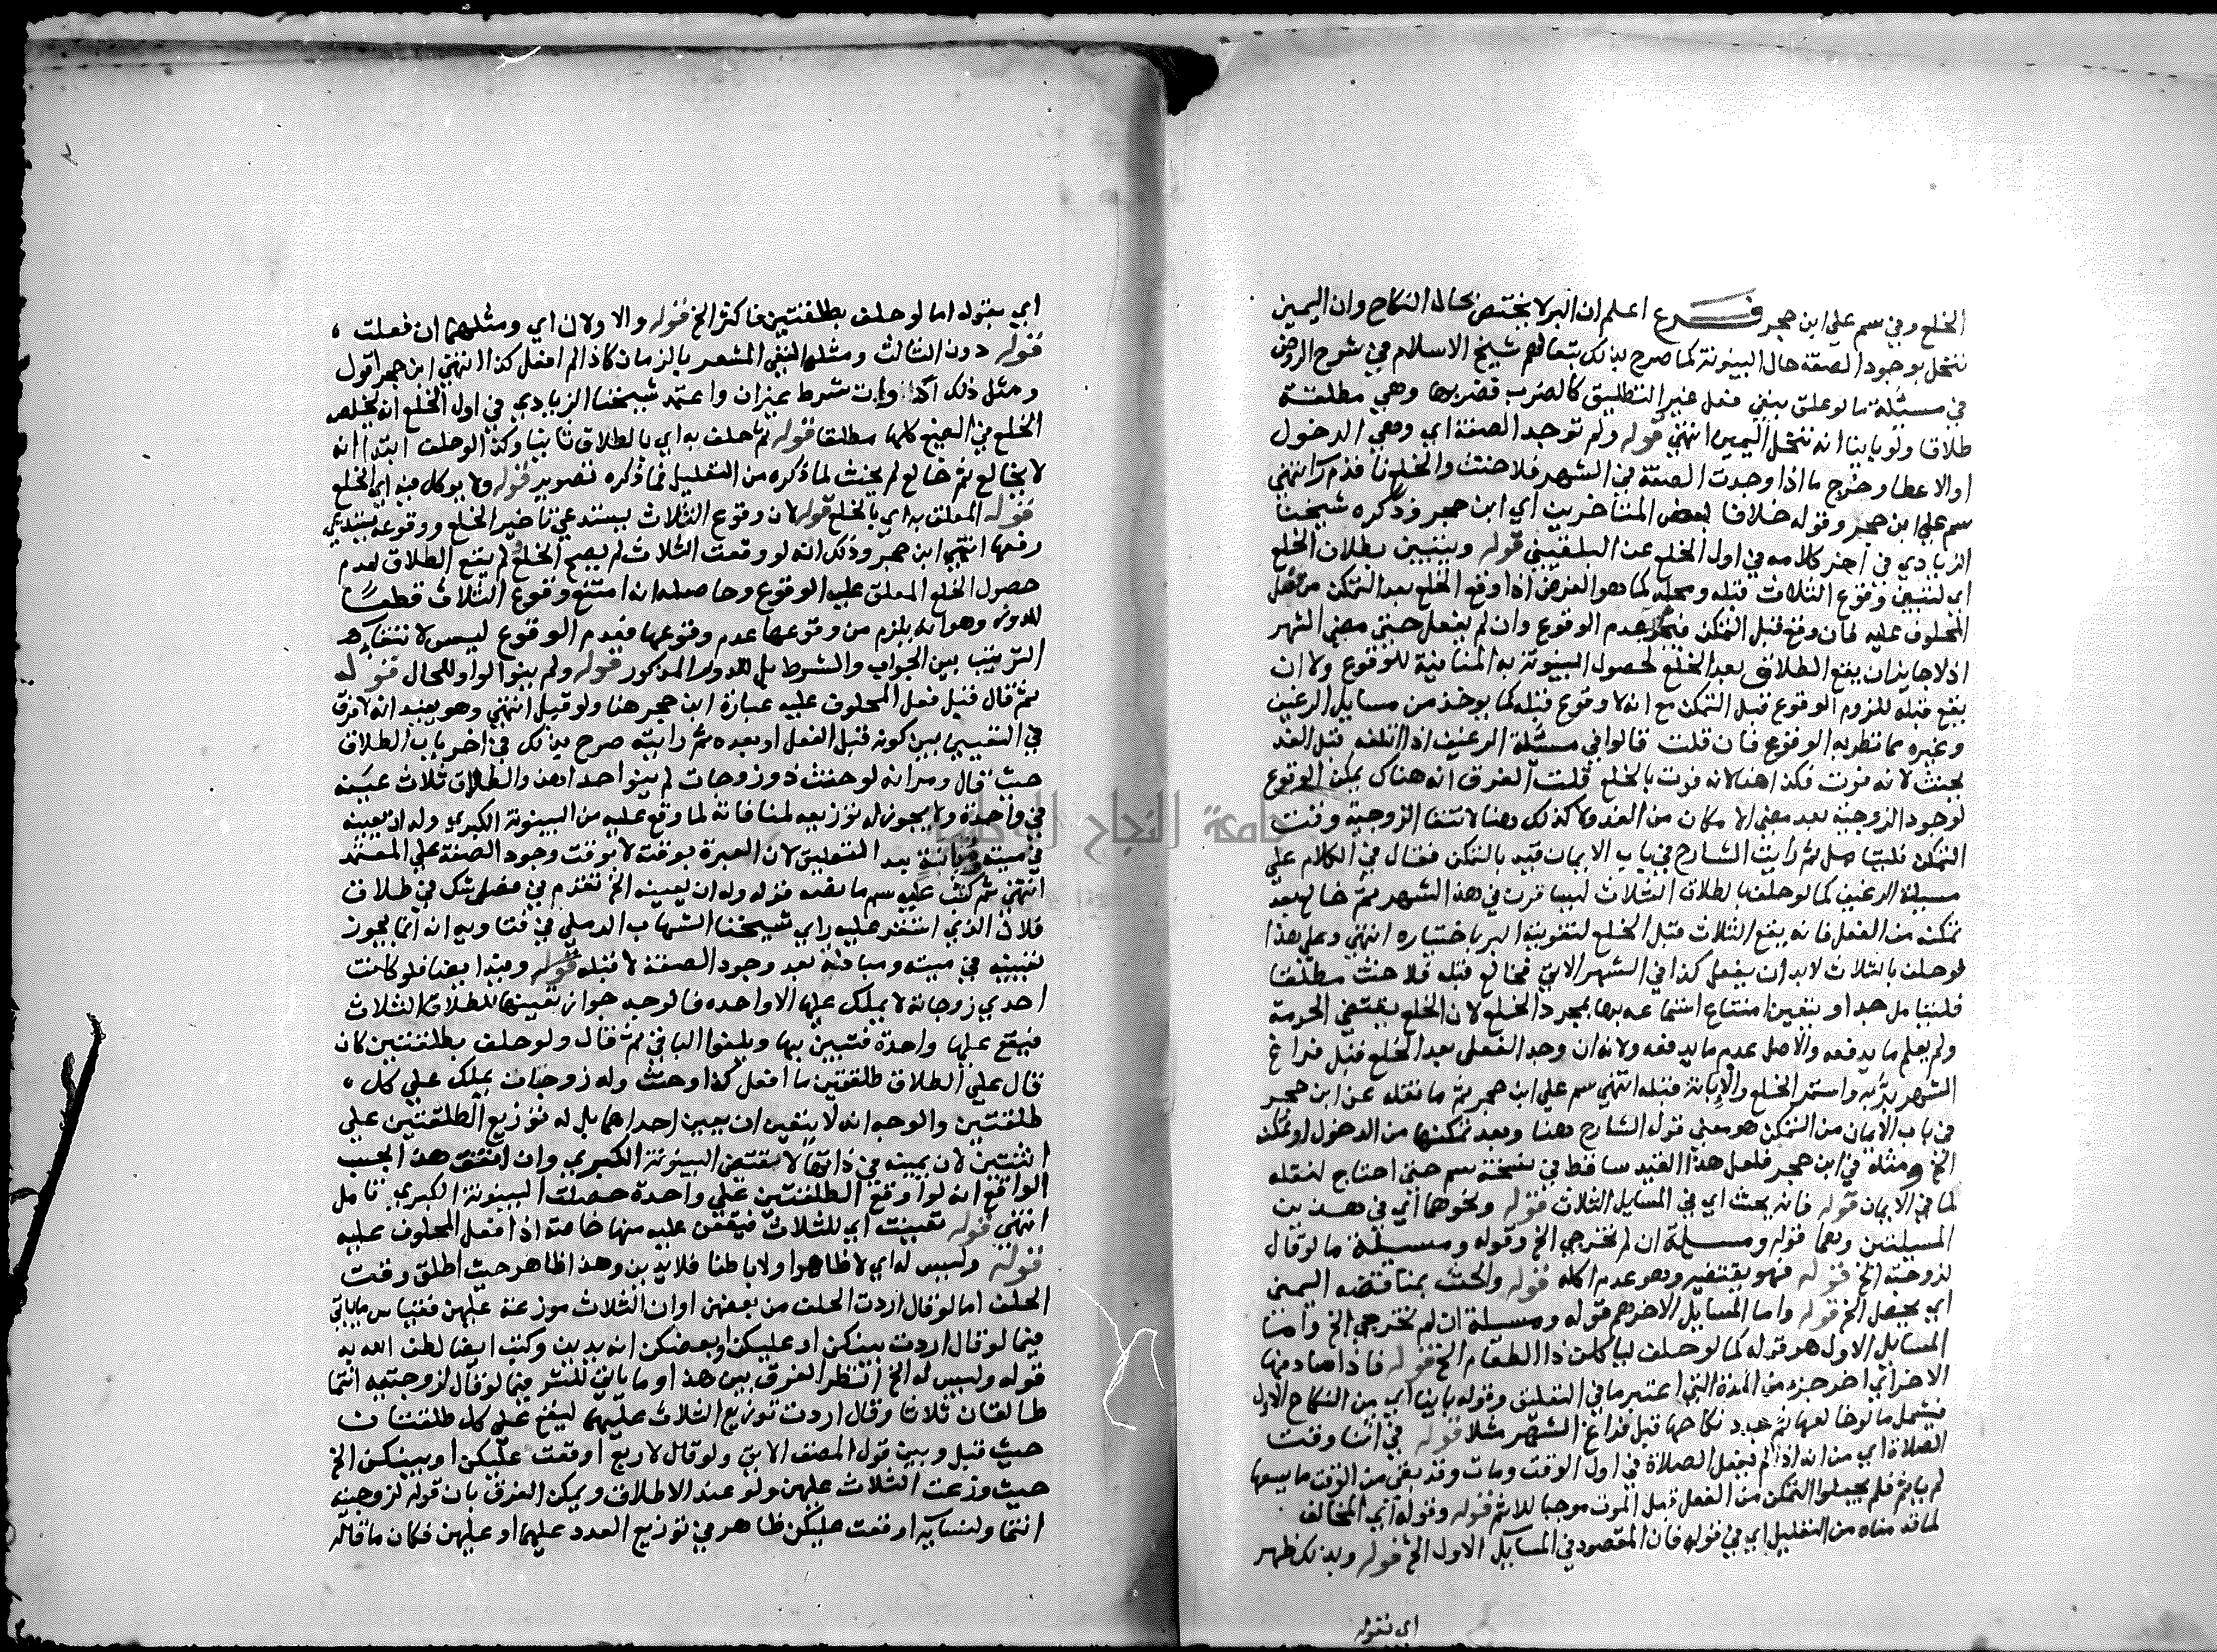 الخلع وفي سم علي ابن حجر فرع اعلم ان البر لا يختص بحالة النكاح وان اليمين
تنحل بوجود الصفة حال البينونة كما صرح بذلك تبعا لهم شيخ الاسلام في شرح الروض
في مسئلة ما لو علق بنفي فعل غير التطليق كالضرب فضربها وهي مطلقة
طلاقا ولو باينا انه تنحل اليمين انتهى قوله ولم توجد الصفة اي وهي الدخول
او الاعطا وخرج ما اذا وجدت الصفة في الشهر فلا حنث والخلع نافذ م ر انتهى
سم علي ابن حجر وقوله خلافا لبعض المتاخرين اي ابن حجر وذكره شيخنا
الزيادي في اخر كلامه في اول الخلع عن البلقيني قوله ويتبين بطلان الخلع
اي لتبين وقوع الثلاث قبله ومحله كما هو الفرض اذا وقع الخلع بعد التمكن من فعل
المحلوف عليه فان وقع قبل التمكن فيتجه عدم الوقوع وان لم يفعل حتى مضى الشهر
اذ لا جايز ان يقع الطلاق بعد الخلع لحصول البينونة به المنافية للوقوع ولا ان
يقع قبله للزوم الوقوع قبل التمكن مع انه لا وقوع قبله كما يوخذ من مسايل الرغيف
وغيره مما نظر به الوقوع فان قلت قالوا في مسئلة الرغيف اذا اتلفه قبل الغد
يحنث لانه فوت فكذا هنا لانه فوت بالخلع قلت الفرق انه هناك يمكن الوقوع
لوجود الزوجية بعد مضي الامكان من الغد ولا كذلك هنا لانتفا الزوجية وقت
التمكن فليتامل ثم رايت الشارح في باب الايمان قيد بالتمكن فقال في الكلام على
مسيلة الرغيف كما لو حلف بالطلاق الثلاث ليسافرن في هذا الشهر ثم خالع بعد
تمكنه من الفعل فانه يقع الثلاث قبل الخلع لتفويته البر باختياره انتهى وعلى هذا
لو حلف بالثلاث لا بد ان يفعل كذا في الشهر الاتي فخالع قبله فلا حنث مطلقا
فليتامل جدا ويتعين امتناع استمتاعه بها بمجرد الخلع لان الخلع يقتضي الحرمة
ولم يعلم ما يدفعه والاصل عدم ما يدفعه ولانه ان وجد الفعل بعد الخلع قبل فراغ
الشهر بر به واستمر الخلع والابانة قبله انتهى سم علي ابن حجر ثم ما نقله عن ابن حجر
في باب الايمان من التمكن هو معنى قول الشارح هنا وبعد تمكنها من الدخول او تمكنه
الخ ومثله في ابن حجر فلعل هذا القيد ساقط في نسخة سم حتى احتاج لنقله
لما في الايمان قوله فانه يحنث اي في المسايل الثلاث قوله ونحوها اي في هذين
المسيلتين وهما قوله ومسيلة ان لم تخرجي الخ وقوله ومسيلة ما لو قال
لزوجته الخ قوله فهو بقتضير وهو عدم اكله قوله والحنث بمناقضة اليمين
اي يحصل الخ قوله واما المسايل الاخر هم قوله ومسيلة ان لم تخرجي الخ واما
المسايل الاول هو قوله كما لو حلف لياكلن ذا الطعام الخ قوله فاذا صادفها
الاخر اي اخر جزء من المدة التي اعتبرها في التعليق وقوله باينا اي من النكاح الاول
فيشمل ما لو خالعها ثم جدد نكاحها قبل فراغ الشهر مثلا قوله في اثنا وقت
الصلاة اي من انه اذا لم يفعل الصلاة في اول الوقت ومات وقد بقي من الوقت ما يسعها
لم ياثم فلم يجعلوا التمكن من الفعل قبل الموت موجبا للاثم قوله وقوله اي المخالف
لما قدمناه من التعليل اي في قوله فان المقصود في المسايل الاول الخ قوله وبذلك ظهر
اي بقوله
اي بقوله اما لو حلف بطلقتين فاكثر الخ قوله والاولان اي ومثلهما ان فعلت
قوله دون الثالث ومثلها النفي المشعر بالزمان كاذا لم افعل كذا انتهى ابن حجر اقول
ومثل ذلك اي شرط غيران واعتمد شيخنا الزيادي في اول الخلع انه يخلص
الخلع في الصيغ كلها مطلقا قوله ثم حلف به اي بالطلاق ثانيا وكذا لو حلف ابتدا انه
لا يخالع ثم خالع لم يحنث لما ذكره من التعليل فما ذكره تصوير قوله ولا يوكل فيه اي الخلع
قوله المعلق به اي بالخلع قوله لان وقوع الثلاث يستدعي تاخير الخلع ووقوعه يستدعي
رفعها انتهى ابن حجر وذلك انه لو وقعت الثلاث لم يصح الخلع ولم يقع الطلاق لعدم
حصول الخلع المعلق عليه الوقوع وحاصله انه امتنع وقوع الثلاث قطعا
للدور وهو انه يلزم من وقوعها عدم وقوعها فعدم الوقوع ليس لانتفا
الترتيب بين الجواب والشرط بل للدور المذكور قوله ولم ينو الواو للحال قوله
ثم قال قبل فعل المحلوف عليه عبارة ابن حجر هنا ولو قبل انتهى وهو يفيد انه لا فرق
في التعيين بين كونه قبل الفعل او بعده ثم رايته صرح بذلك في اخر باب الطلاق
حيث قال ومر انه لو حنث ذو زوجات لم ينو احداهن والطلاق ثلاث عينه
في واحدة ولا يجوز له توزيعه لمنافاته لما وقع عليه من البينونة الكبرى وله ان يعينه
في ميتة وباينة بعد التعليق لان العبرة بوقته لا بوقت وجود الصفة على المعتمد
انتهى ثم كتب عليه سم ما نصه قوله وله ان يعينه الخ تقدم في فصل شك في طلاق
فلان الذي استقر عليه راي شيخنا الشهاب الرملي في فتاويه انه انما يجوز
تعيينه في ميتة ومبانة بعد وجود الصفة لا قبله قوله وفيه ايضا فلو كانت
احدى زوجاته لا يملك عليها الا واحدة فالوجه جواز تعيينها للطلاق الثلاث
فيقع عليها واحدة فتبين بها ويلغوا الباقي ثم قال ولو حلف بطلقتين كان
قال علي الطلاق طلقتين ما افعل كذا وحنث وله زوجات يملك على كل
طلقتين والوجه انه لا يتعين ان يعين احداهما بل له توزيع الطلقتين على
الثنتين لان يمينه في ذاتها لا يقتضي البينونة الكبرى وان اتفق هذا بحسب
الواقع انه لو اوقع الطلقتين على واحدة حصلت البينونة الكبرى تامل
انتهى قوله تعينت اي للثلاث فيقعن عليه منها خاصة اذا فعل المحلوف عليه
قوله وليس له اي لا ظاهرا ولا باطنا فلا يدين وهذا ظاهر حيث اطلق وقت
الحلف اما لو قال اردت الحلف من بعضهن او ان الثلاث موزعة عليهن فقياس ما ياتي
فيما لو قال اردت بينكن او عليكن او بعضكن انه يدين وكتب ايضا لطف الله به
قوله وليس له الخ انظر الفرق بين هذا وما ياتي للنشر فيما لو قال لزوجتيه انتما
طالقان ثلاثا وقال اردت توزيع الثلاث عليهما ليقع على كل طلقتان
حيث قبل وبين قول المصنف الاتي ولو قال لاربع اوقعت عليكن او بينكن الخ
حيث وزعت الثلاث عليهن ولو عند الاطلاق ويمكن الفرق بان قوله لزوجتيه
انتما ولنسايه اوقعت عليكن ظاهر في توزيع العدد عليهما او عليهن فكان ما قاله
جامعة النجاح الوطنية